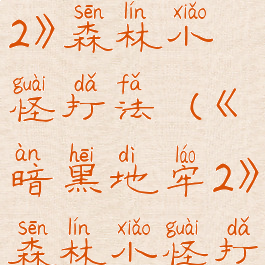 sēn lín xiǎo
2》森林小
guài dǎ fǎ
怪打法（《
àn hēi dì láo
暗黑地牢2》
sēn lín xiǎo guài dǎ
森林小怪打